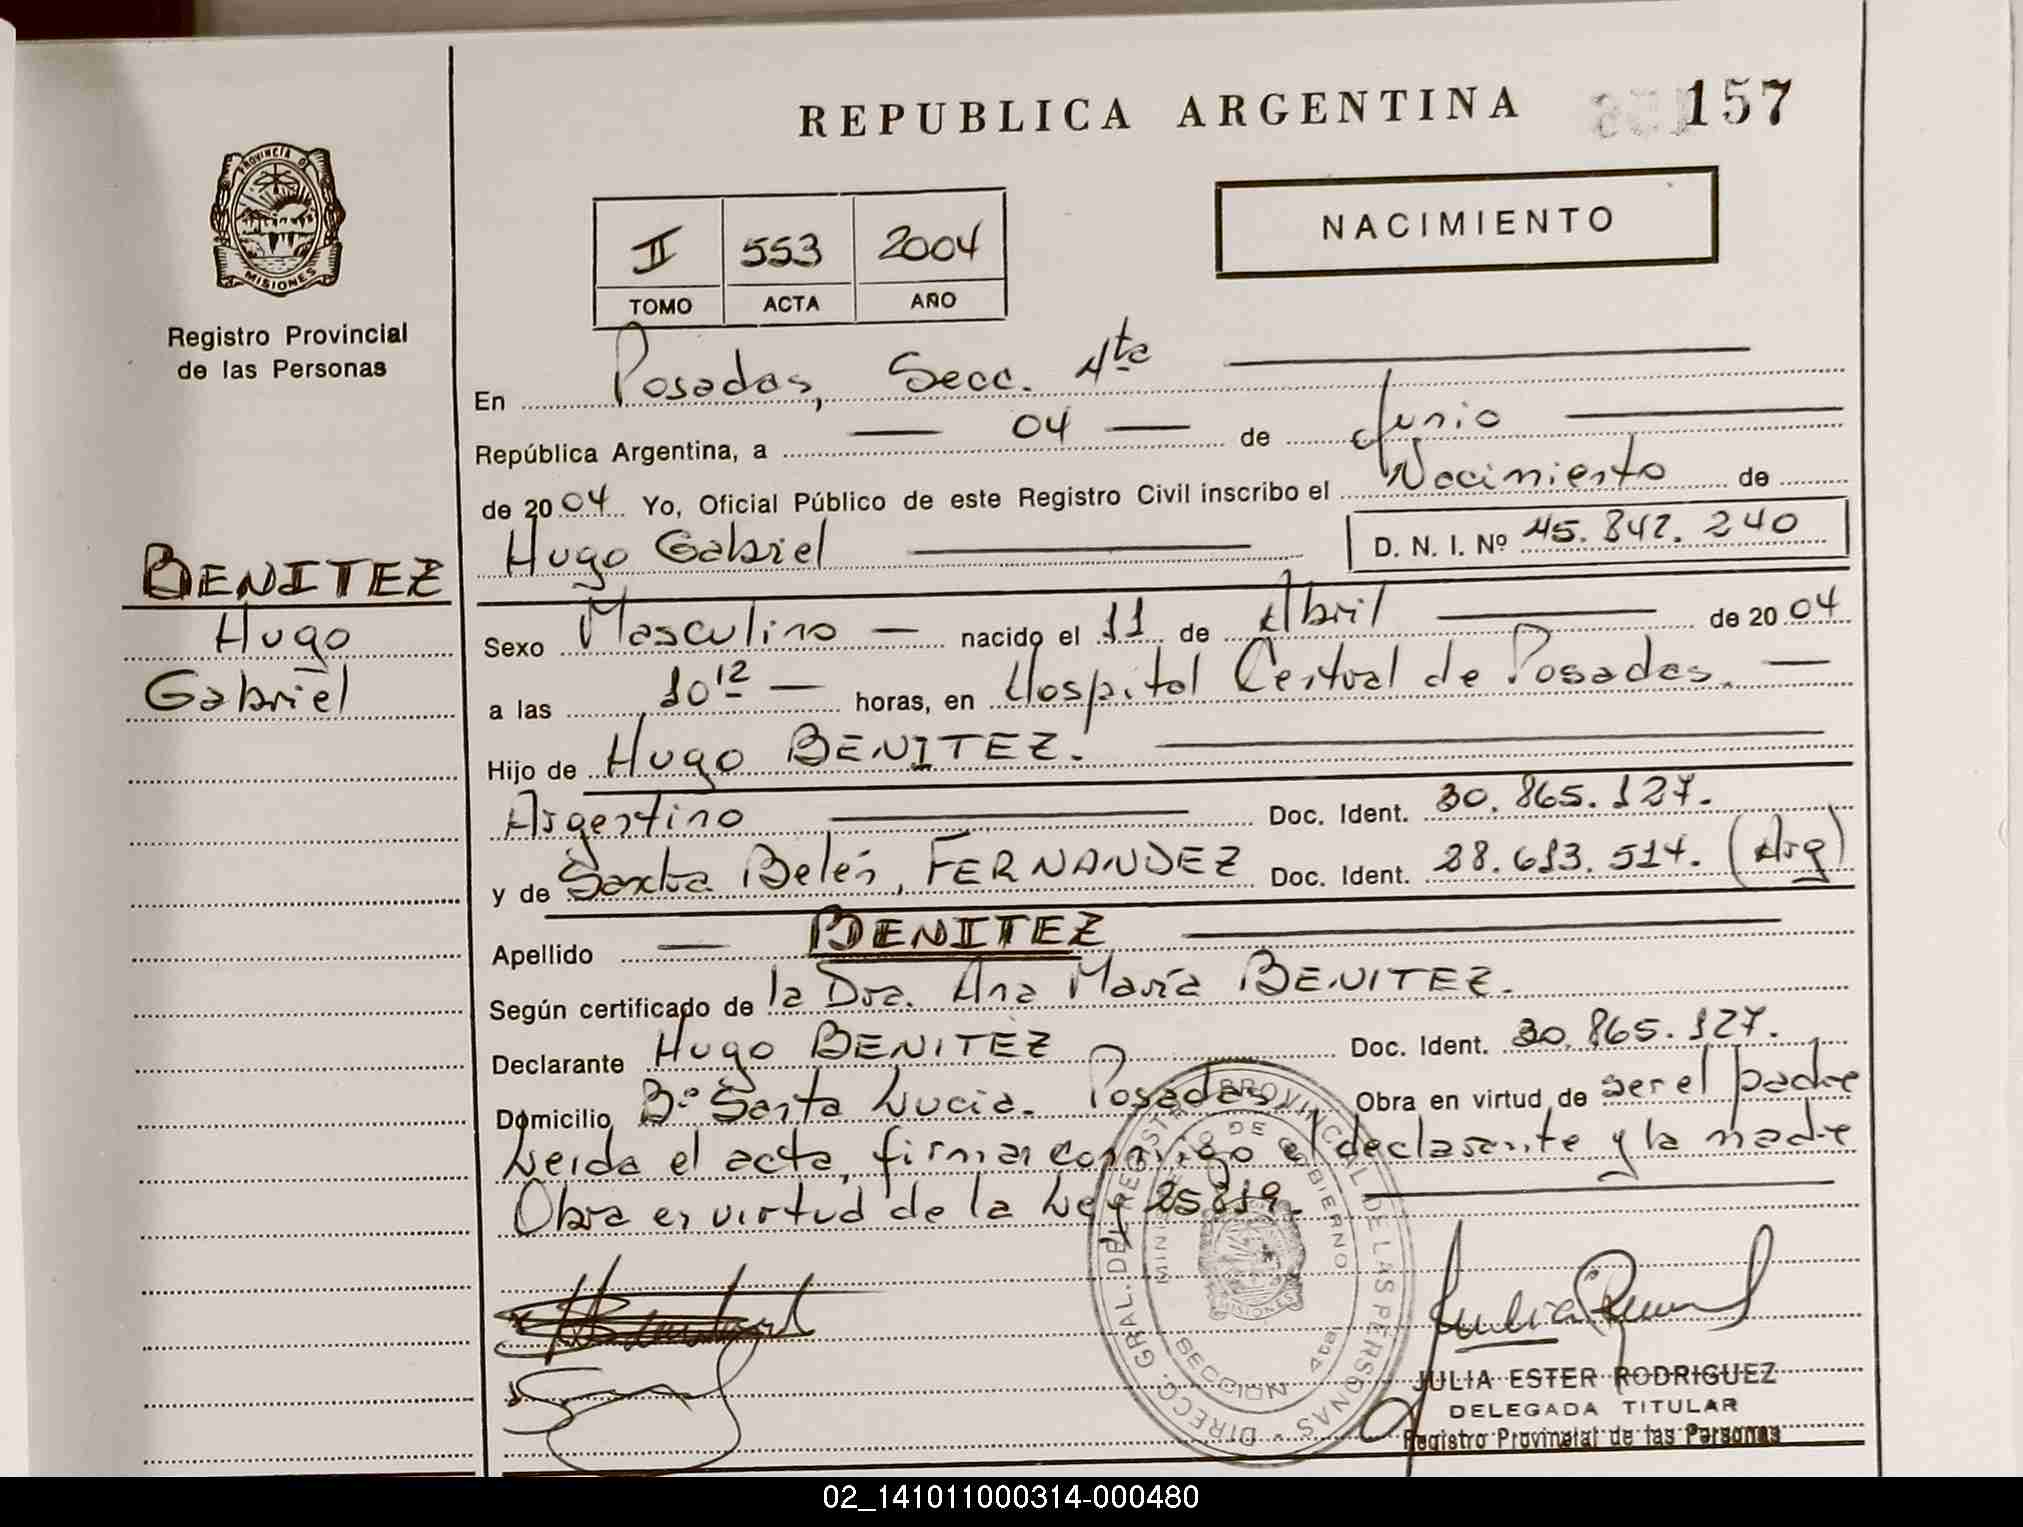 REPUBLICA ARGENTINA 157
PROVINCIA DE
MISIONES
Registro Provincial
de las Personas
NACIMIENTO
II 553 2004
TOMO ACTA AÑO
En Posadas, Secc. 4ta
República Argentina, a 04 de Junio
de 2004 Yo, Oficial Público de este Registro Civil inscribo el Nacimiento de
Hugo Gabriel D. N. I. Nº 45.842.240
BENITEZ
Hugo
Gabriel
Sexo Masculino nacido el 11 de Abril de 2004
a las 10 12 horas, en Hospital Central de Posadas.
Hijo de Hugo BENITEZ.
Argentino Doc. Ident. 30.865.127.
y de Belén, FERNANDEZ Doc. Ident. 28.613.514. (Arg)
Apellido BENITEZ
Según certificado de la Dra. Ana María BENITEZ.
Declarante Hugo BENITEZ Doc. Ident. 30.865.127.
Domicilio Bº Santa Lucia. Posadas Obra en virtud de ser el padre
Leida el acta, firman conmigo el declarante y la madre
Obra en virtud de la Ley 25819.
DIRECC. GRAL. DEL REGISTRO PROVINCIAL DE LAS PERSONAS
MINISTERIO DE GOBIERNO
MISIONES
SECCION 4ta
JULIA ESTER RODRIGUEZ
DELEGADA TITULAR
Registro Provincial de las Personas
02_141011000314-000480